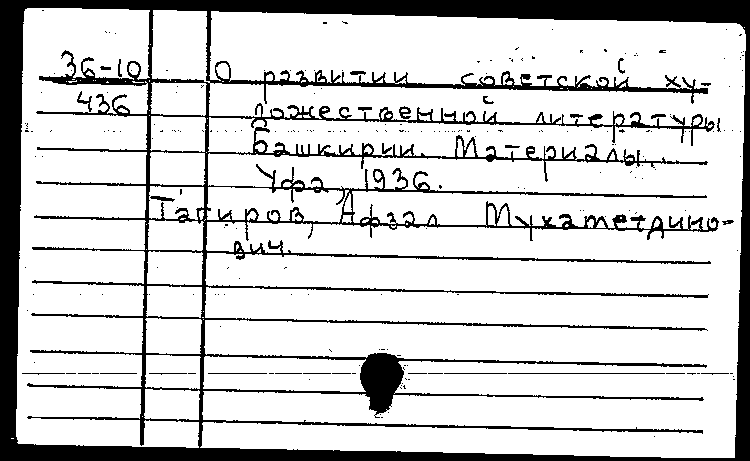 36-10 О развитии советской ху-
436 дожественной литературы
Башкирии. Материалы...
Уфа, 1936.
Тагиров, Афзал Мухаметдино-
вич.